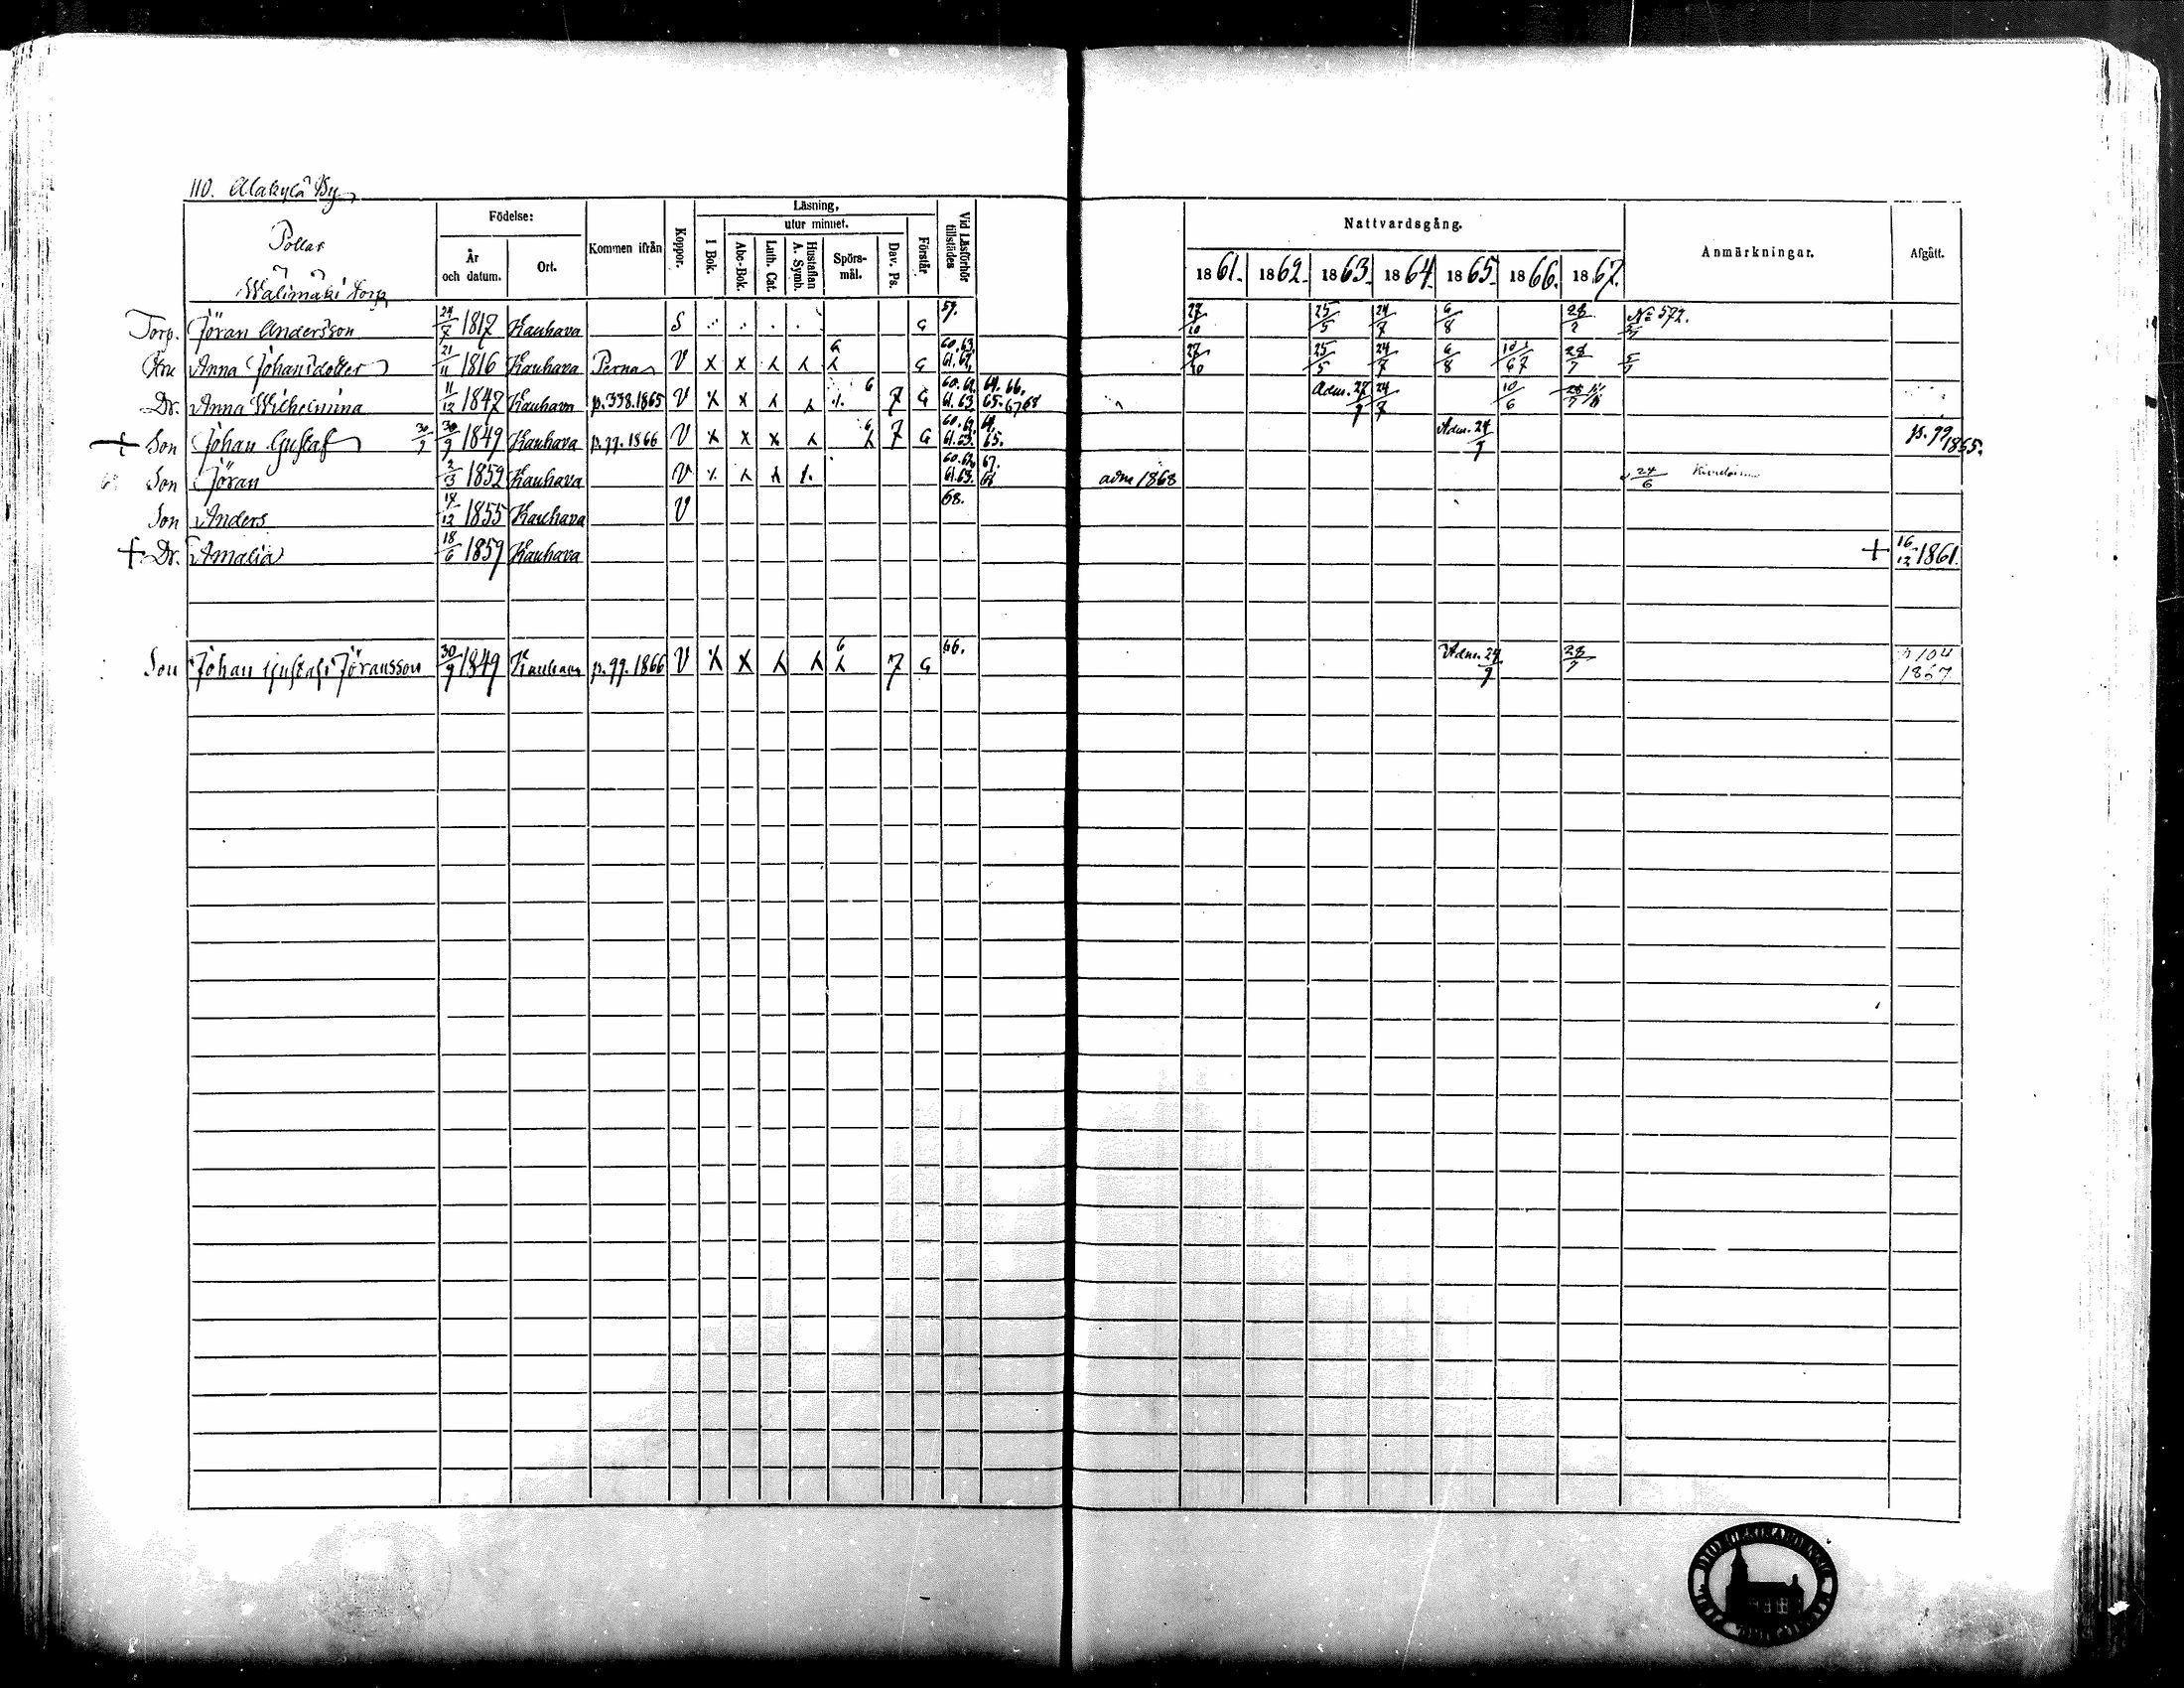 110. Alakylä By
Pollar
Wälimäki Torp
Födelse:
År och datum.
Ort.
Kommen ifrån
Koppor.
Läsning,
I Bok.
utur minnet.
Abc-Bok.
Luth. Cat.
Hustaflan A. Symb.
Spörs-mål.
Dav. Ps.
Förstår.
Vid Läsförhör tillstädes
Nattvardsgång.
1861. 1862. 1863. 1864. 1865. 1866. 1867.
Anmärkningar.
Afgått.
Torp. Jöran Andersson 24/7 1817 Kauhava S G 59. 27/10 25/5 24/7 6/8 28/7 No 572.
Hu Anna Johansdotter 21/11 1816 Kauhava Perna V X X G 60.63. 61. 27/10 25/5 24/7 6/8 28/7
Dr. Anna Wilhelmina 11/12 1847 Kauhava p.338.1865 V X X 6 7 G 60. 61.63. 64. 66. 65. 67 68 Adm. 27/9 24/7 10/6
+ Son Johan Gustaf 30/9 30/9 1849 Kauhava p.99.1866 V X X X 6 7 G 60. 61.63. 64. 65. Adm. 24/9 p. 99 1865.
Son Jöran 2/3 1852 Kauhava V 60. 61.63. 67. 68 adm 1868 24/6
Son Anders 1855 Kauhava V 68.
+ Dr. Amalia 18/6 1859 Kauhava + 16/12 1861.
Son Johan Gustaf Jöransson 30/9 1849 Kauhava p.99.1866 V X X 6 7 G 66. Adm. 24/9 28/7 p 104 1867